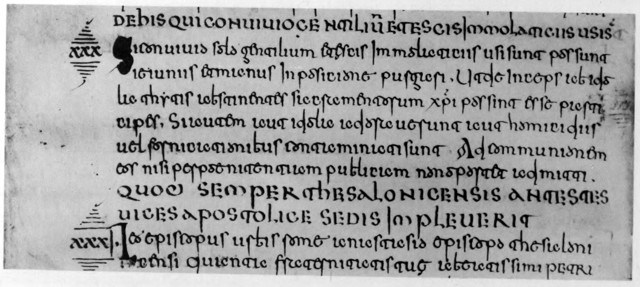 DE hIS QUI CONUIUIO GENTILIŪ ET ESCIS IMMOLATICIIS USI S̄
XXX Si conuiuio solo gentilium et escis Immolaticiis usi sunt possunt
ieiuniis et manus Inposicione purgari. Ut deInceps ab ido
la thytis abstinentes sacramentorum xp̄i possint esse parti
cipes. Si autem aut idola adorauerunt aut homicidiis
uel fornicationibus contaminati sunt. Ad communionem
eos nisi per poenitentiam publicam non oportet admitti.
QUOD SEMPER THESALONICENSIS ANTESTES
UICES APOSTOLICE SEDIS IMPLEUERIT
XXXI Leo episcopus urbis rome anastasio episcopo thesaloni
censi Quantae fraternitatis tuę a beatissimi PETRI